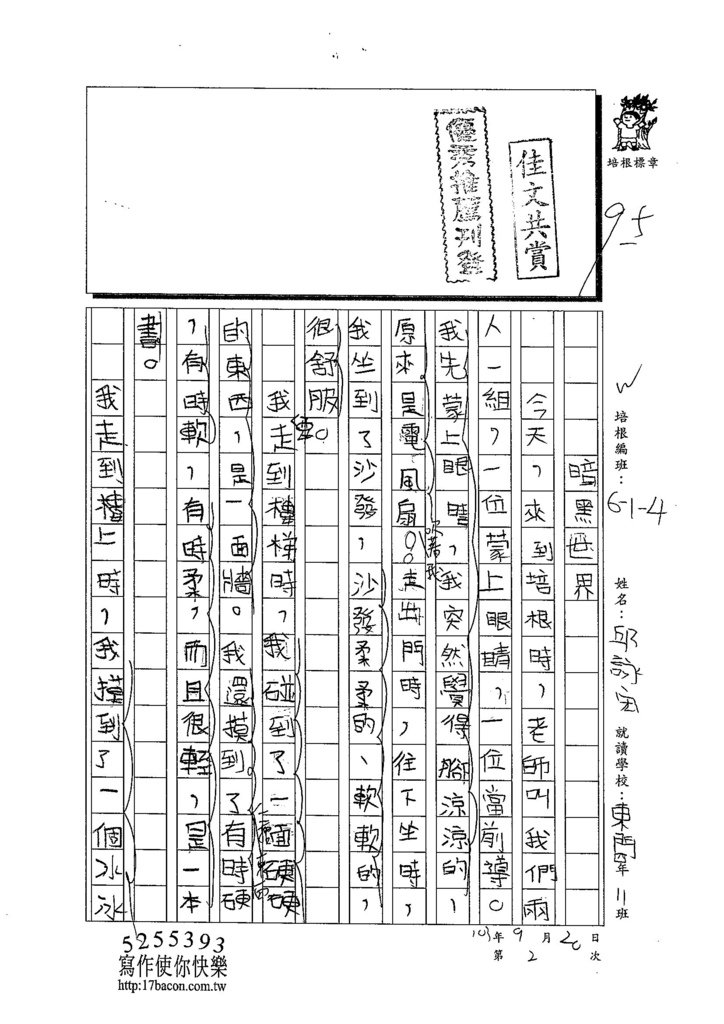 培根標章
佳文共賞
優秀推薦刊登
95
培根編班：6-1-4
姓名：邱詠
就讀學校：東門 年 11 班
暗黑世界
今天，來到培根時，老師叫我們兩
人一組，一位蒙上眼睛，一位當前導。
我先蒙上眼睛，我突然覺得腳涼涼的，
原來是電風扇吹著我。走出門時，往下坐時，
我坐到了沙發，沙發柔柔的、軟軟的，
很舒服。
我走到樓梯時，我碰到了一面硬硬
的東西，是一面牆。我還摸到了有時硬
，有時軟，有時柔，而且很輕，是一本
書。
我走到樓上時，我摸到了一個冰冰
年 9 月 20 日
第 2 次
5255393
寫作使你快樂
http:17bacon.com.tw